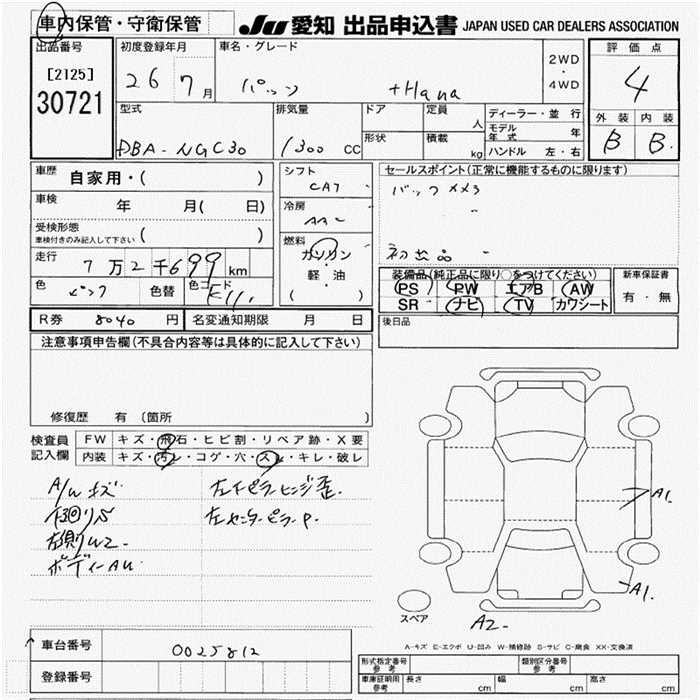 車内保管・守衛保管
JU 愛知 出品申込書 JAPAN USED CAR DEALERS ASSOCIATION
出品番号 [2125] 30721
初度登録年月 26 7月
車名・グレード パッソ +Hana
2WD・4WD
評価点 4
外装 B 内装 B
型式 DBA-NGC30
排気量 1300 CC
ドア
形状
定員 人
積載 kg
ディーラー・並行
モデル年式 年
ハンドル 左・右
車歴 自家用・( )
車検 年 月( 日)
受検形態 車検付きのみ記入して下さい ( )
走行 7万2千699 km
色 ピンク 色替 色コード
シフト CAT
冷房 AAC
燃料 ガソリン・軽油 ( )
セールスポイント(正常に機能するものに限ります)
バックカメラ
初出品
装備品(純正品に限り○をつけてください)
PS PW エアB AW
SR ナビ TV カワシート
新車保証書 有・無
R券 8040 円 名変通知期限 月 日
後日品
注意事項申告欄(不具合内容等は具体的に記入して下さい)
修復歴 有 (箇所 )
検査員記入欄
FW キズ・飛石・ヒビ割・リペア跡・X要
内装 キズ・汚レ・コゲ・穴・スレ・キレ・破レ
A/W キズ
下回りS
左側W2
ボディーAU
左Fピラーヒンジ歪
左センターピラーP
A1.
A1.
A2-
スペア
A-キズ E-エクボ U-凹み W-補修跡 S-サビ C-腐食 XX-交換済
車台番号 0025812
登録番号
形式指定番号 参考
類別区分番号 参考
車庫証明用 参考 長さ cm 幅 cm 高さ cm